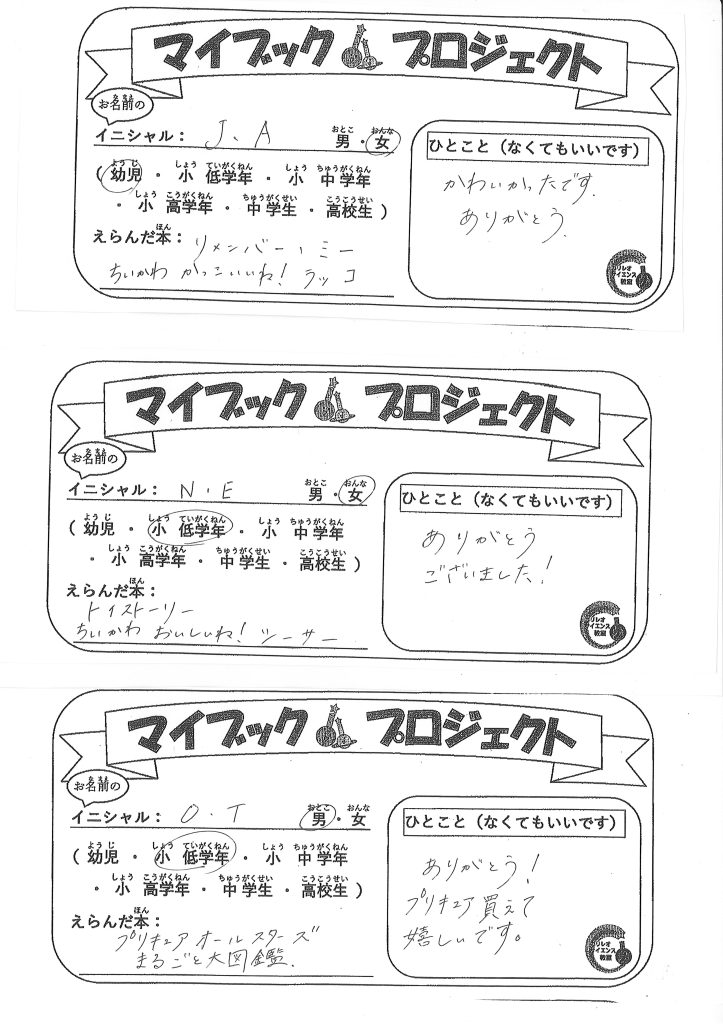 マイブック プロジェクト
お名前の
イニシャル： J．A 男・女
（幼児・小 低学年・小 中学年
・小 高学年・中学生・高校生）
えらんだ本： リメンバー・ミー
ちいかわ かっこいいね！ ラッコ
ひとこと（なくてもいいです）
かわいかったです．
ありがとう．
リレオ
イエンス
教室
マイブック プロジェクト
お名前の
イニシャル： N．E 男・女
（幼児・小 低学年・小 中学年
・小 高学年・中学生・高校生）
えらんだ本：
トイストーリー
ちいかわ おいしいね！ シーサー
ひとこと（なくてもいいです）
ありがとう
ございました！
リレオ
イエンス
教室
マイブック プロジェクト
お名前の
イニシャル： O．T 男・女
（幼児・小 低学年・小 中学年
・小 高学年・中学生・高校生）
えらんだ本：
プリキュアオールスターズ
まるごと大図鑑．
ひとこと（なくてもいいです）
ありがとう！
プリキュア買えて
嬉しいです。
リレオ
イエンス
教室